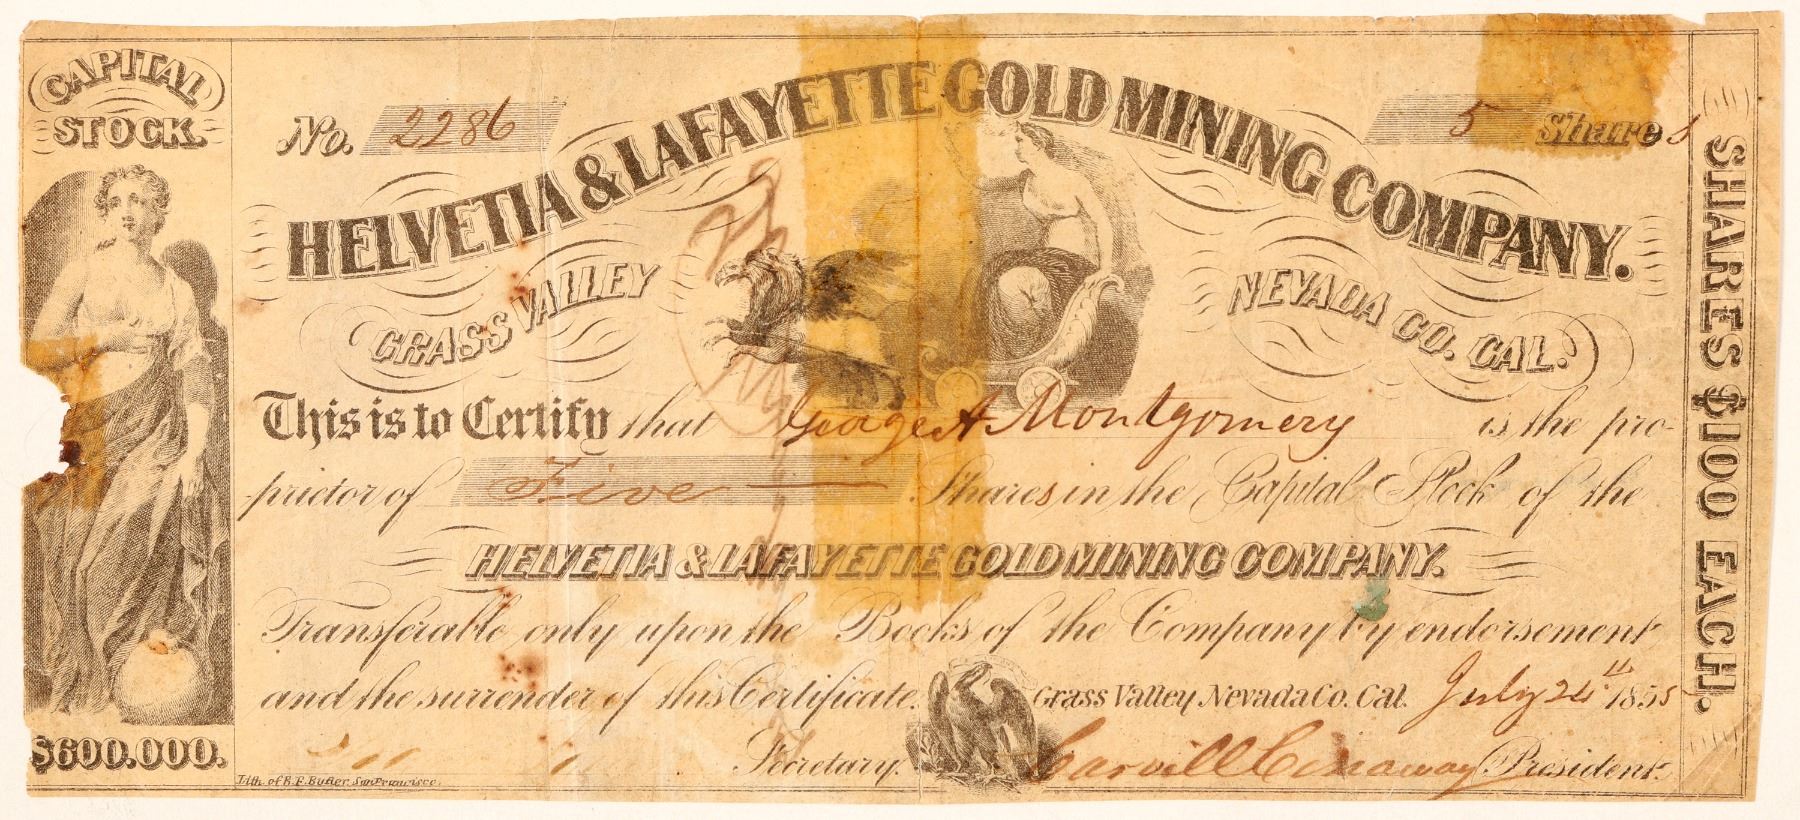 CAPITAL
STOCK.
No. 2286
5 Shares
HELVETIA & LAFAYETTE GOLD MINING COMPANY.
GRASS VALLEY
NEVADA CO. CAL.
This is to Certify that George A Montgomery is the pro-
prietor of Five Shares in the Capital Stock of the
HELVETIA & LAFAYETTE GOLD MINING COMPANY.
Transferable only upon the Books of the Company by endorsement
and the surrender of this Certificate. Grass Valley, Nevada Co. Cal. July 24th 1855
Secretary. President.
$600.000.
Lith. of B. F. Butler. San Francisco.
SHARES $100 EACH.